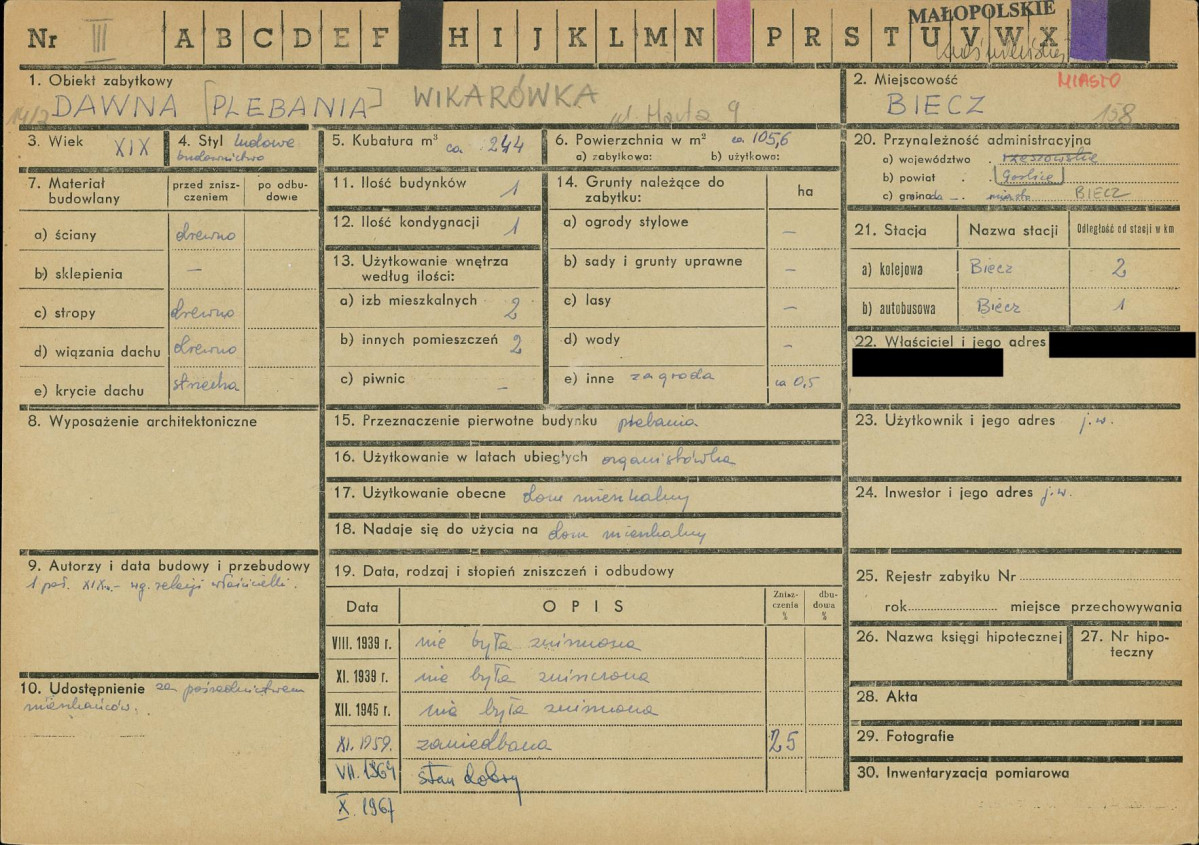 Nr III A B C D E F H I J K L M N P R S T U V W X
MAŁOPOLSKIE
1. Obiekt zabytkowy
DAWNA [PLEBANIA] WIKARÓWKA
ul. Harta 9
2. Miejscowość MIASTO
BIECZ
158
3. Wiek XIX
4. Styl ludowe
budownictwo
5. Kubatura m³ ca. 244
6. Powierzchnia w m² ca. 105,6
a) zabytkowa: b) użytkowa:
20. Przynależność administracyjna
a) województwo rzeszowskie
b) powiat Gorlice
c) gromada miasto BIECZ
7. Materiał budowlany
przed zniszczeniem
po odbudowie
a) ściany drewno
b) sklepienia –
c) stropy drewno
d) wiązania dachu drewno
e) krycie dachu strzecha
11. Ilość budynków 1
12. Ilość kondygnacji 1
13. Użytkowanie wnętrza
według ilości:
a) izb mieszkalnych 2
b) innych pomieszczeń 2
c) piwnic –
14. Grunty należące do
zabytku: ha
a) ogrody stylowe –
b) sady i grunty uprawne –
c) lasy –
d) wody –
e) inne zagroda ca 0,5
21. Stacja Nazwa stacji Odległość od stacji w km
a) kolejowa Biecz 2
b) autobusowa Biecz 1
22. Właściciel i jego adres
8. Wyposażenie architektoniczne
15. Przeznaczenie pierwotne budynku plebania
16. Użytkowanie w latach ubiegłych organistówka
17. Użytkowanie obecne dom mieszkalny
18. Nadaje się do użycia na dom mieszkalny
23. Użytkownik i jego adres j.w.
24. Inwestor i jego adres j.w.
9. Autorzy i data budowy i przebudowy
1 poł. XIXw. – wg. relacji właścicielki.
10. Udostępnienie za pośrednictwem
mieszkańców.
19. Data, rodzaj i stopień zniszczeń i odbudowy
Data OPIS Zniszczenia % dbudowa %
VIII. 1939 r. nie była zniszczona
XI. 1939 r. nie była zniszczona
XII. 1945 r. nie była zniszczona
XI. 1959. zaniedbana 25
VII. 1964 stan dobry
X. 1967
25. Rejestr zabytku Nr
rok miejsce przechowywania
26. Nazwa księgi hipotecznej
27. Nr hipoteczny
28. Akta
29. Fotografie
30. Inwentaryzacja pomiarowa